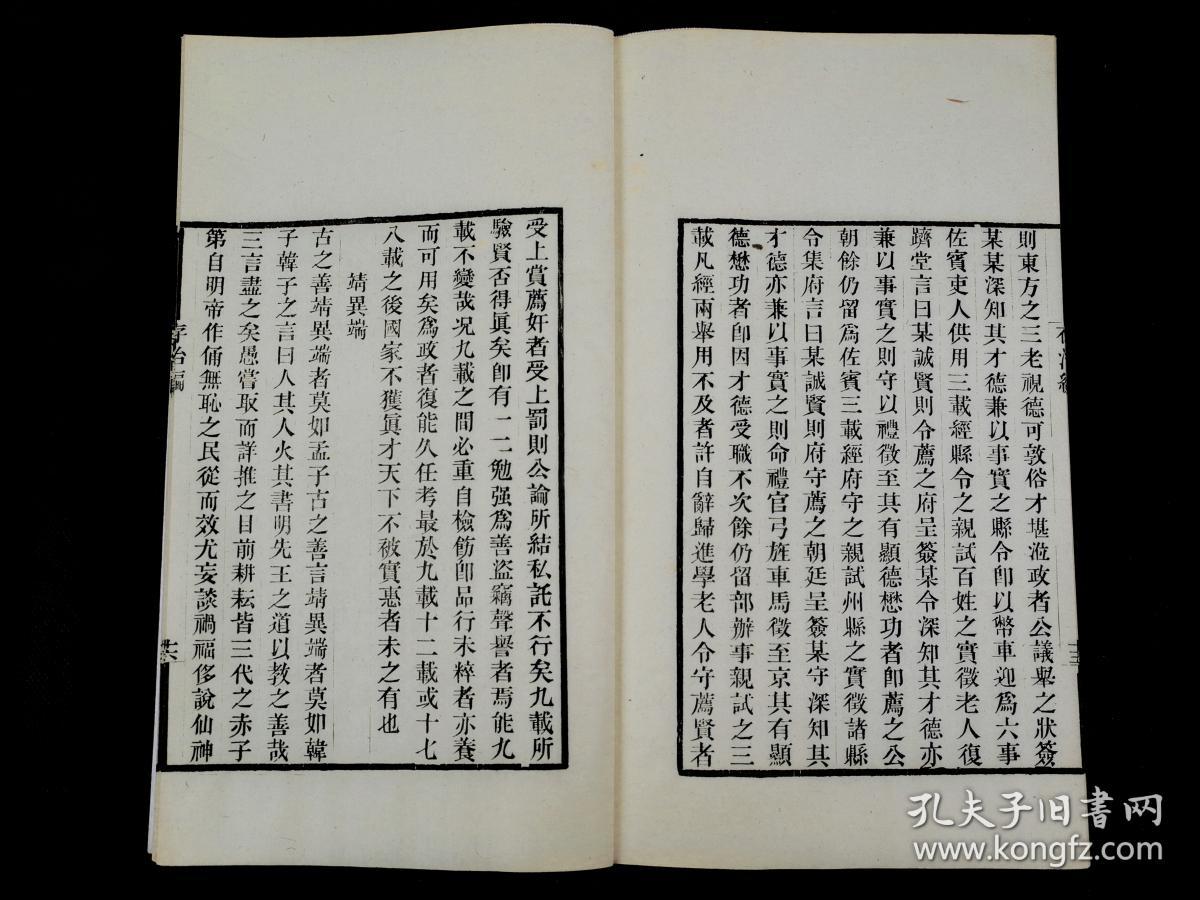 則東方之三老視德可敦俗才堪涖政者公議舉之狀簽
某某深知其才德兼以事實之縣令卽以幣車迎爲六事
佐賓吏人供用三載經縣令之親試百姓之實徵老人復
躋堂言曰某誠賢則令薦之府呈簽某令深知其才德亦
兼以事實之則守以禮徵至其有顯德懋功者卽薦之公
朝餘仍留爲佐賓三載經府守之親試州縣之實徵諸縣
令集府言曰某誠賢則府守薦之朝廷呈簽某守深知其
才德亦兼以事實之則命禮官弓旌車馬徵至京其有顯
德懋功者卽因才德受職不次餘仍留部辦事親試之三
載凡經兩舉用不及者許自辭歸進學老人令守薦賢者
受上賞薦奸者受上罰則公論所結私託不行矣九載所
驗賢否得眞矣卽有一二勉强爲善盜竊聲譽者焉能九
載不變哉況九載之間必重自檢飭卽品行未粹者亦養
而可用矣爲政者復能久任考最於九載十二載或十七
八載之後國家不獲眞才天下不被實惠者未之有也
靖異端
古之善靖異端者莫如孟子古之善言靖異端者莫如韓
子韓子之言曰人其人火其書明先王之道以教之善哉
三言盡之矣愚嘗取而詳推之目前耕耘皆三代之赤子
第自明帝作俑無恥之民從而效尤妄談禍福侈說仙神
存治編
十六
孔夫子旧书网
www.kongfz.com